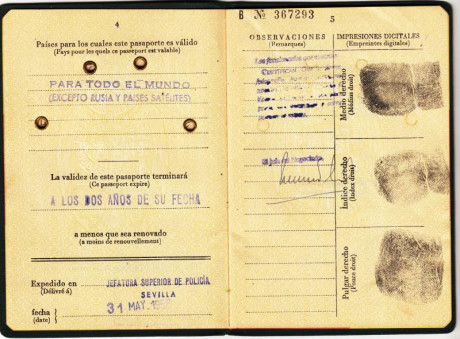 4
Países para los cuales este pasaporte es válido
(Pays pour les quels ce passeport est valable)
PARA TODO EL MUNDO
(EXCEPTO RUSIA Y PAISES SATELITES)
La validez de este pasaporte terminará
(Ce passeport expire)
A LOS DOS AÑOS DE SU FECHA
a menos que sea renovado
(a moins de renouvellement)
Expedido en
(Délivré á)
JEFATURA SUPERIOR DE POLICÍA
SEVILLA
fecha
(date)
31 MAY.
B № 367293
5
OBSERVACIONES
(Remarques)
El Jefe del Negociado
IMPRESIONES DIGITALES
(Empreintes digitales)
Medio derecho
(Médion droit)
Índice derecho
(Index droit)
Pulgar derecho
(Pouce droit)